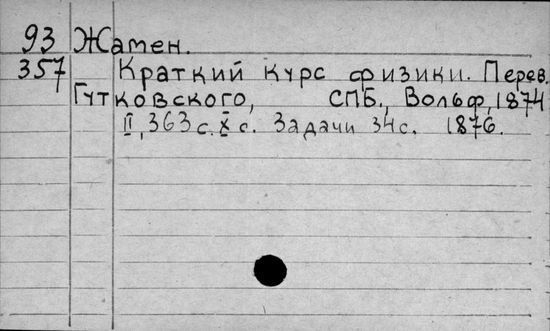 93 Жамен.
357 Краткий курс физики. Перев.
Гутковского, СПБ., Вольф, 1874
II, 363 с. X с. Задачи 34 с. 1876.